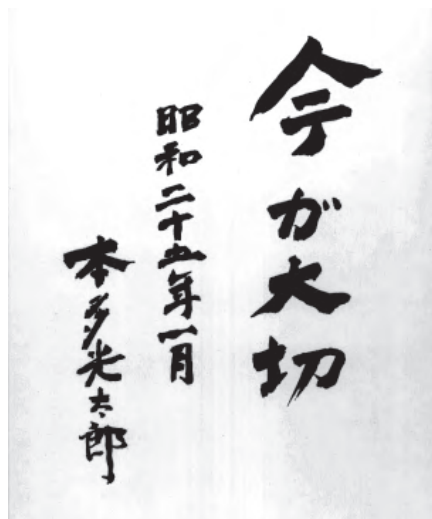 今が大切
昭和二十五年一月
本多光太郎